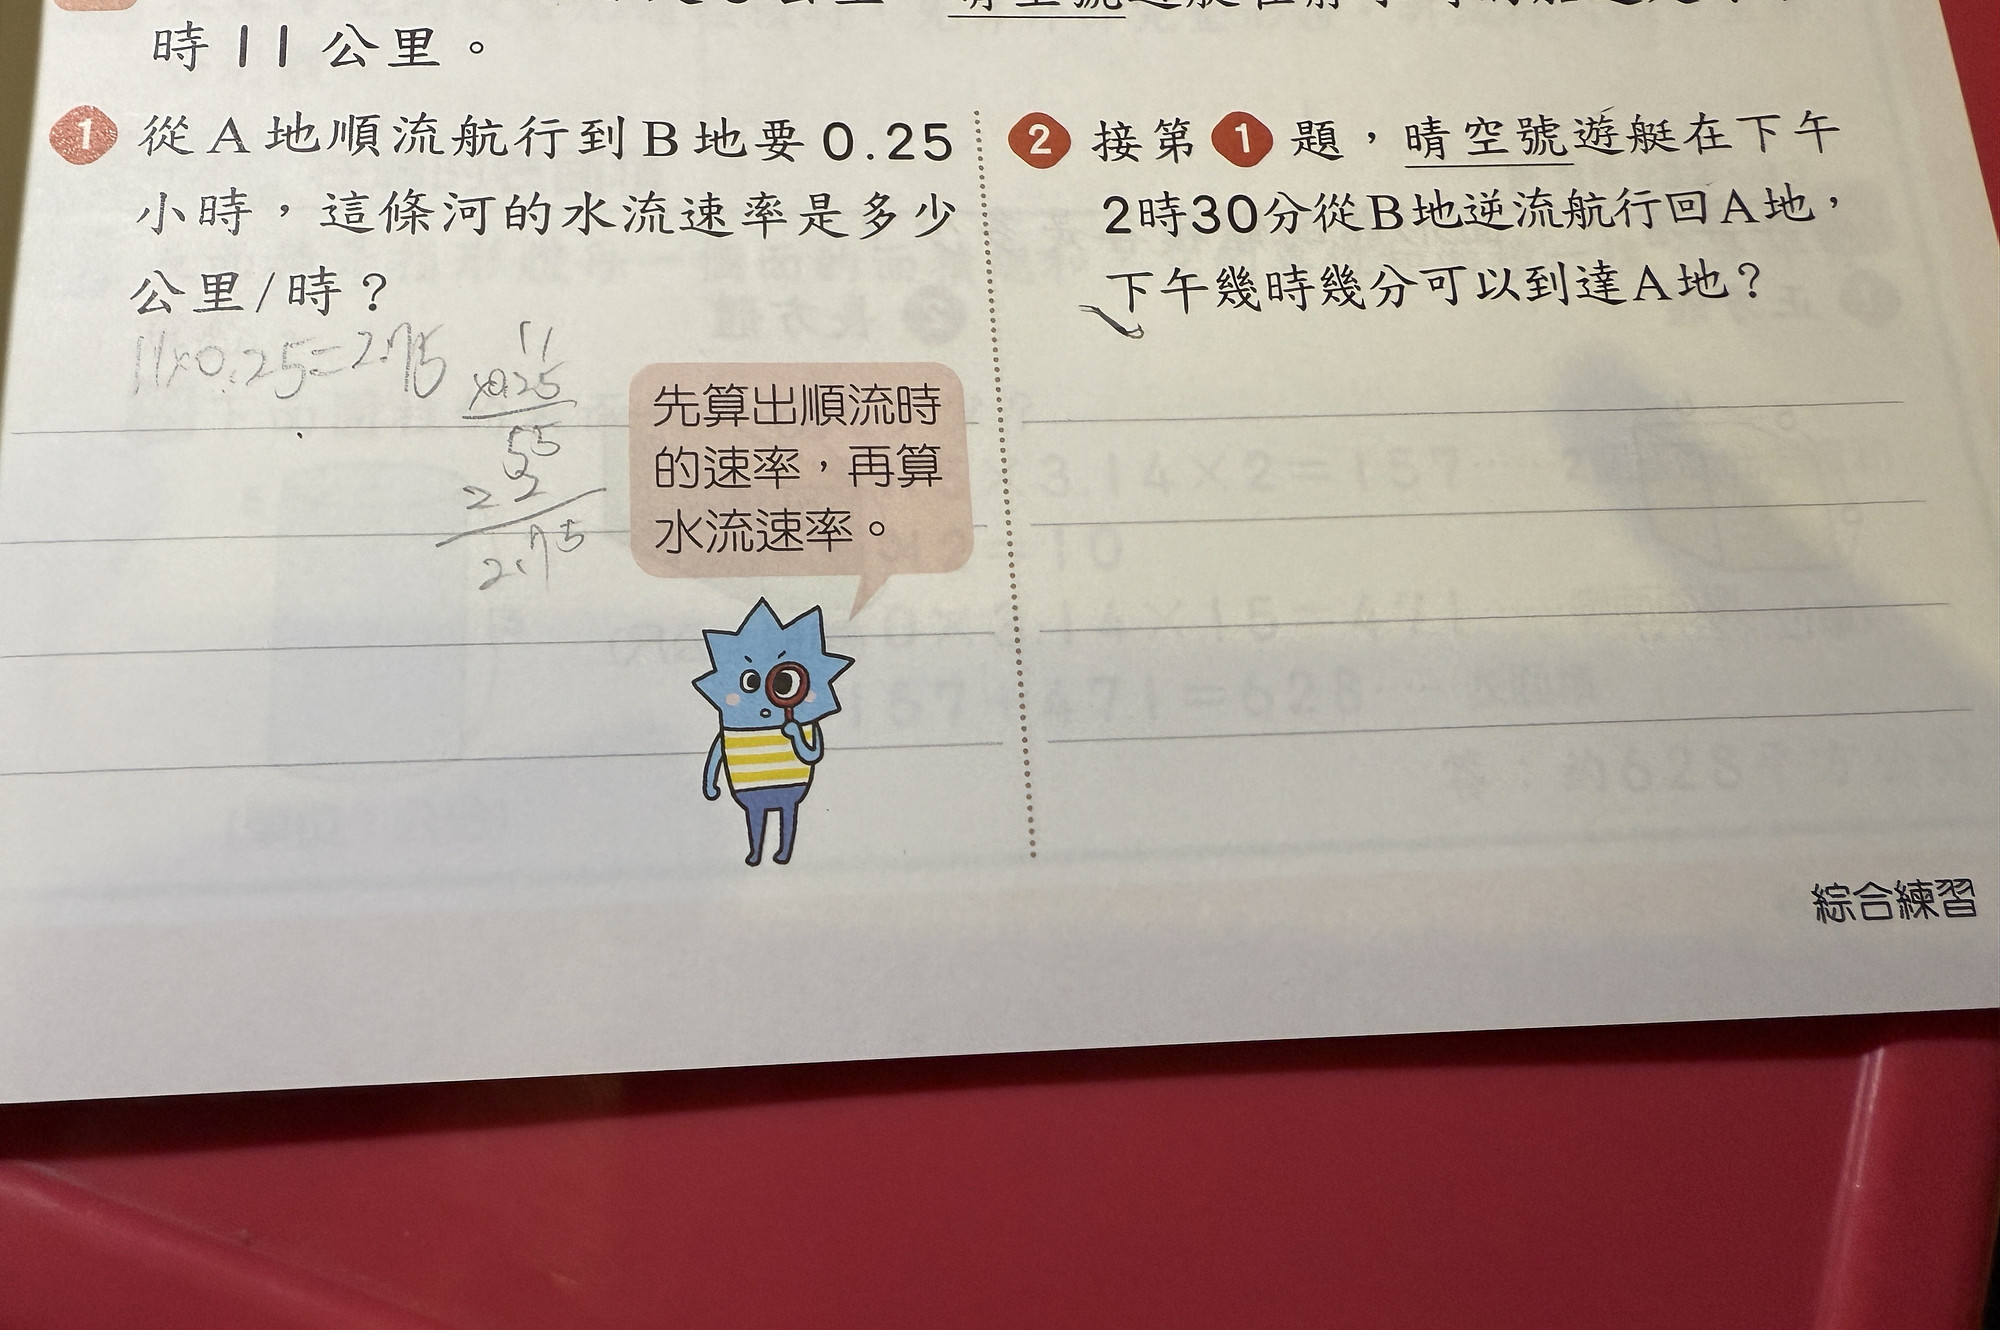 時11公里。
1 從A地順流航行到B地要0.25
小時，這條河的水流速率是多少
公里/時？
11×0.25=2.75
11
×0.25
55
22
2.75
先算出順流時
的速率，再算
水流速率。
2 接第1題，晴空號遊艇在下午
2時30分從B地逆流航行回A地，
下午幾時幾分可以到達A地？
綜合練習